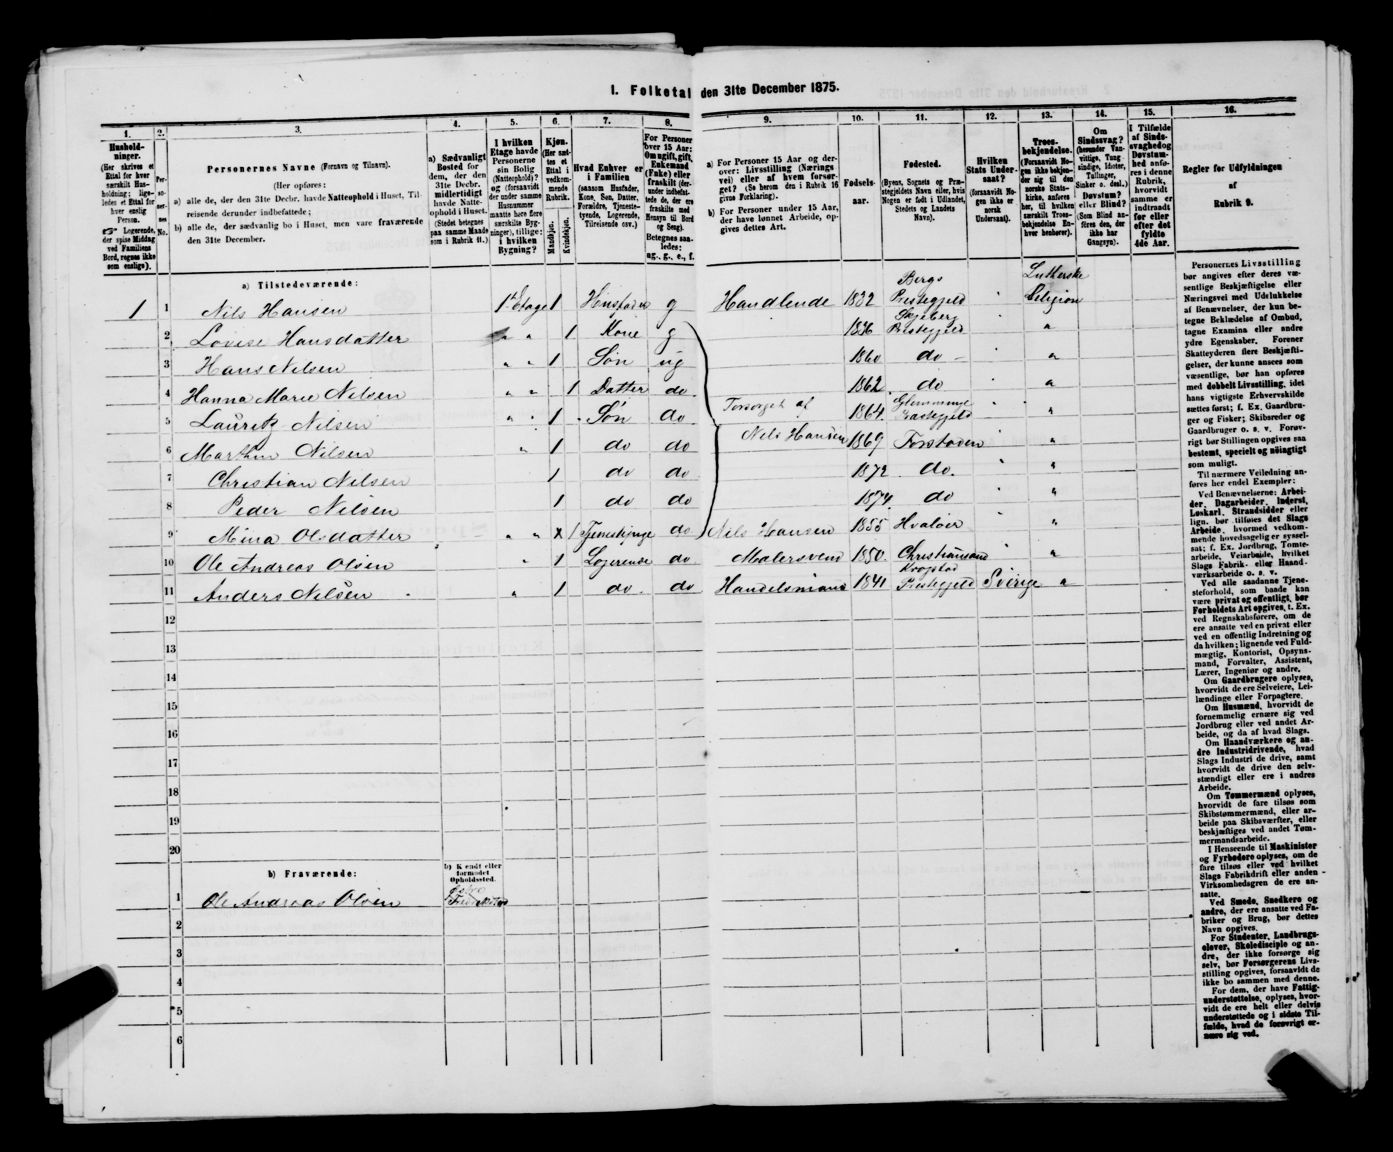 I. Folketal den 31te December 1875.
1.
Hushold-
ninger.
(Her skrives et
Ettal for hver
særskilt Hus-
holdning; lige-
ledes et Ettal for
hver enslig
Person.
Logerende,
der spise Middag
ved Familiens
Bord, regnes ikke
som enslige).
2.
Per-
so-
ner-
nes
No.
3.
Personernes Navne (Fornavn og Tilnavn).
(Her opføres:
a) alle de, der den 31te Decbr. havde Natteophold i Huset, Til-
reisende derunder indbefattede;
b) alle de, der sædvanlig bo i Huset, men vare fraværende
den 31te December.
4.
a) Sædvanligt
Bosted for
dem, der den
31te Decbr.
midlertidigt
havde Natte-
ophold i Huset.
(Stedet betegnes
paa samme Maade
som i Rubrik 11.)
5.
I hvilken
Etage havde
Personerne
sin Bolig
(Natteophold)?
og (forsaavidt
der under samme
Husnummer
maatte høre flere
særskilte Byg-
ninger), tillige:
i hvilken
Bygning?
6.
Kjøn.
(Her sæt-
tes et
Ettal i
vedkom-
mende
Rubrik.
Mandkjøn.
Kvindekjøn.
7.
Hvad Enhver er
i Familien
(saasom Husfader,
Kone, Søn, Datter,
Forældre, Tjeneste-
tyende, Logerende,
Tilreisende osv.)
8.
For Personer
over 15 Aar:
Om ugift, gift,
Enkemand
(Enke) eller
fraskilt (der-
under indbefat-
tede de, der ere
fraskilte med
Hensyn til Bord
og Seng).
Betegnes saa-
ledes:
ug., g., e., f.
9.
a) For Personer 15 Aar og der-
over: Livsstilling (Nærings
vei) eller af hvem forsør-
get? (Se herom den i Rubrik 16
givne Forklaring).
b) For Personer under 15 Aar,
der have lønnet Arbeide, op-
gives dettes Art.
10.
Fødsels-
aar.
11.
Fødested.
(Byens, Sognets og Præ-
stegjeldets Navn eller, hvis
Nogen er født i Udlandet,
Stedets og Landets
Navn).
12.
Hvilken
Stats Under-
saat?
(forsaavidt No-
gen ikke er
norsk
Undersaat).
13.
Troes-
bekjendelse.
(Forsaavidt No-
gen ikke bekjen-
der sig til den
norske Stats-
kirke, anføres
her, til hvilken
særskilt Tros-
bekjendelse En-
hver henhører).
14.
Om
Sindssvag?
(herunder Van-
vittige, Tung-
sindige, Idioter,
Tullinger,
Sinker o. desl.)
Døvstum?
eller Blind?
(Som Blind an-
føres den, der
ikke har
Gangsyn).
15.
I Tilfælde
af Sinds-
svaghed og
Døvstum-
hed anfø-
res i denne
Rubrik,
hvorvidt
samme er
indtraadt
før eller
efter det
fyldte
4de Aar.
16.
Regler for Udfyldningen
af
Rubrik 9.
a) Tilstedeværende:
1 1 Nils Hansen 1ste Etage 1 Husfader g Handlende 1832 Bergs Prestegjeld Lutherske Religion
2 Lovise Hansdatter " " 1 Kone g 1836 Skjeberg Prestegjeld "
3 Hans Nilsen " " 1 Søn ug 1860 do "
4 Hanna Marie Nilsen " " 1 Datter do 1862 do "
5 Lauritz Nilsen " " 1 Søn do Forsørget af 1864 Glemminge Prestegjeld "
6 Marthin Nilsen " 1 do do Nils Hansen 1869 Forstaden "
7 Christian Nilsen 1 do do 1872 do. "
8 Peder Nilsen 1 do do 1874 do "
9 Mina Olsdatter " " x 1 Tjenestepige do Nils Hansen 1855 Hvaløer "
10 Ole Andreas Olsen " " 1 Logerende do Malersvend 1850 Christiansand "
11 Anders Nilsen " 1 do. do Handelsmand 1841 Prestegjeld Sverige "
12
13
14
15
16
17
18
19
20
b) Fraværende:
b) Kjendt eller
formodet
Opholdssted.
1 Ole Andreas Olsen
2
3
4
5
6
Personernes Livsstilling
bør angives efter deres væ-
sentlige Beskjæftigelse eller
Næringsvei med Udelukkelse
af Benævnelser, der kun be-
tegne Beklædelse af Ombud,
tagne Examina eller andre
ydre Egenskaber. Forener
Skatteyderen flere Beskjæfti-
gelser, der kunne ansees som
væsentlige, bør han opføres
med dobbelt Livsstilling, idet
hans vigtigste Erhvervskilde
sættes først; f. Ex. Gaardbru-
ger og Fisker; Skibsreder og
Gaardbruger o. s. v. Forøv-
rigt bør Stillingen opgives saa
bestemt, specielt og nøiagtigt
som muligt.
Til nærmere Veiledning an-
føres her endel Exempler:
Ved Benævnelserne: Arbei-
der, Dagarbeider, Inderst,
Løskarl, Strandsidder eller
lign. bør tilføies det Slags
Arbeide, hvormed vedkom-
mende hovedsagelig er syssel-
sat; f. Ex. Jordbrug, Tomte-
arbeide, Veiarbeide, hvilket
Slags Fabrik- eller Haand-
værksarbeide o. s. v.
Ved alle saadanne Tjene-
steforhold, som baade kan
være privat og offentligt, bør
Forholdets Art opgives, t. Ex.
ved Regnskabsførere, om de
ere ansatte ved en privat eller
ved en offentlig Indretning og
da hvilken; lignende ved Fuld-
mægtig, Kontorist, Opsyns-
mand, Forvalter, Assistent,
Lærer, Ingeniør og andre.
Om Gaardbrugere oplyses,
hvorvidt de ere Selveiere, Lei-
lændinge eller Forpagtere.
Om Husmænd, hvorvidt de
fornemmelig ernære sig ved
Jordbrug eller ved andet Ar-
beide, og da af hvad Slags.
Om Haandværkere og an-
dre Industridrivende, hvad
Slags Industri de drive, samt
hvorvidt de drive den selv-
stændigt eller ere i andres
Arbeide.
Om Tømmermænd oplyses,
hvorvidt de fare tilsøs som
Skibstømmermænd, eller ar-
beide paa Skibsværfter, eller
beskjæftiges ved andet Tøm-
mermandsarbeide.
I Henseende til Maskinister
og Fyrbødere oplyses, om de
fare tilsøs eller ved hvilket
Slags Fabrikdrift eller anden
Virksomhedsgren de ere an-
satte.
Ved Smede, Snedkere og
andre, der ere ansatte ved Fa-
briker og Brug, bør dettes
Navn opgives.
For Studenter, Landbrugs-
elever, Skoledisciple og an-
dre, der ikke forsørge sig
selv, bør Forsørgerens Livs-
stilling opgives, forsaavidt de
ikke bo sammen med denne.
For dem, der have Fattig-
understøttelse, oplyses, hvor-
vidt de ere helt eller delvis
understøttede og i sidste Til-
fælde, hvad de forøvrigt er-
nære sig ved.